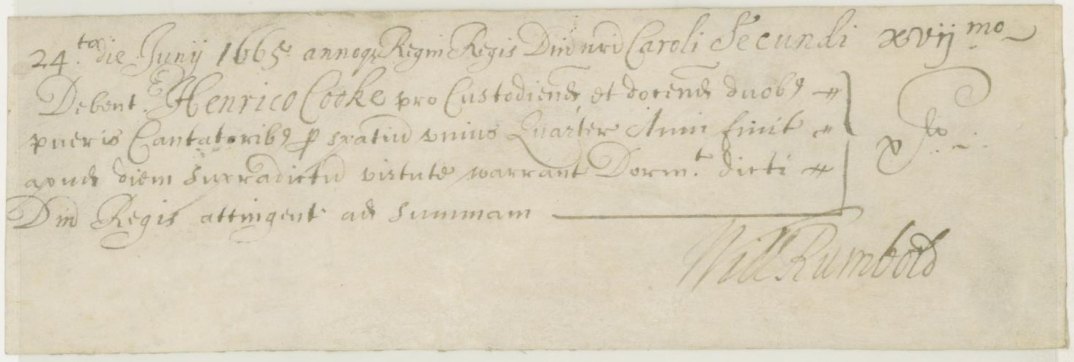 24.ta die Junij 1665 annoq Regni Regis Dni nri Caroli Secundi xvijmo
Debent.r Henrico Cooke pro Custodiend et docend duob9
pueris Cantatorib9 p spatiu unius Quarter Anni finit
apud diem supradictu virtute warrant Dorm.t dicti
Dni Regis attingent ad summam
xv li
Will Rumbold